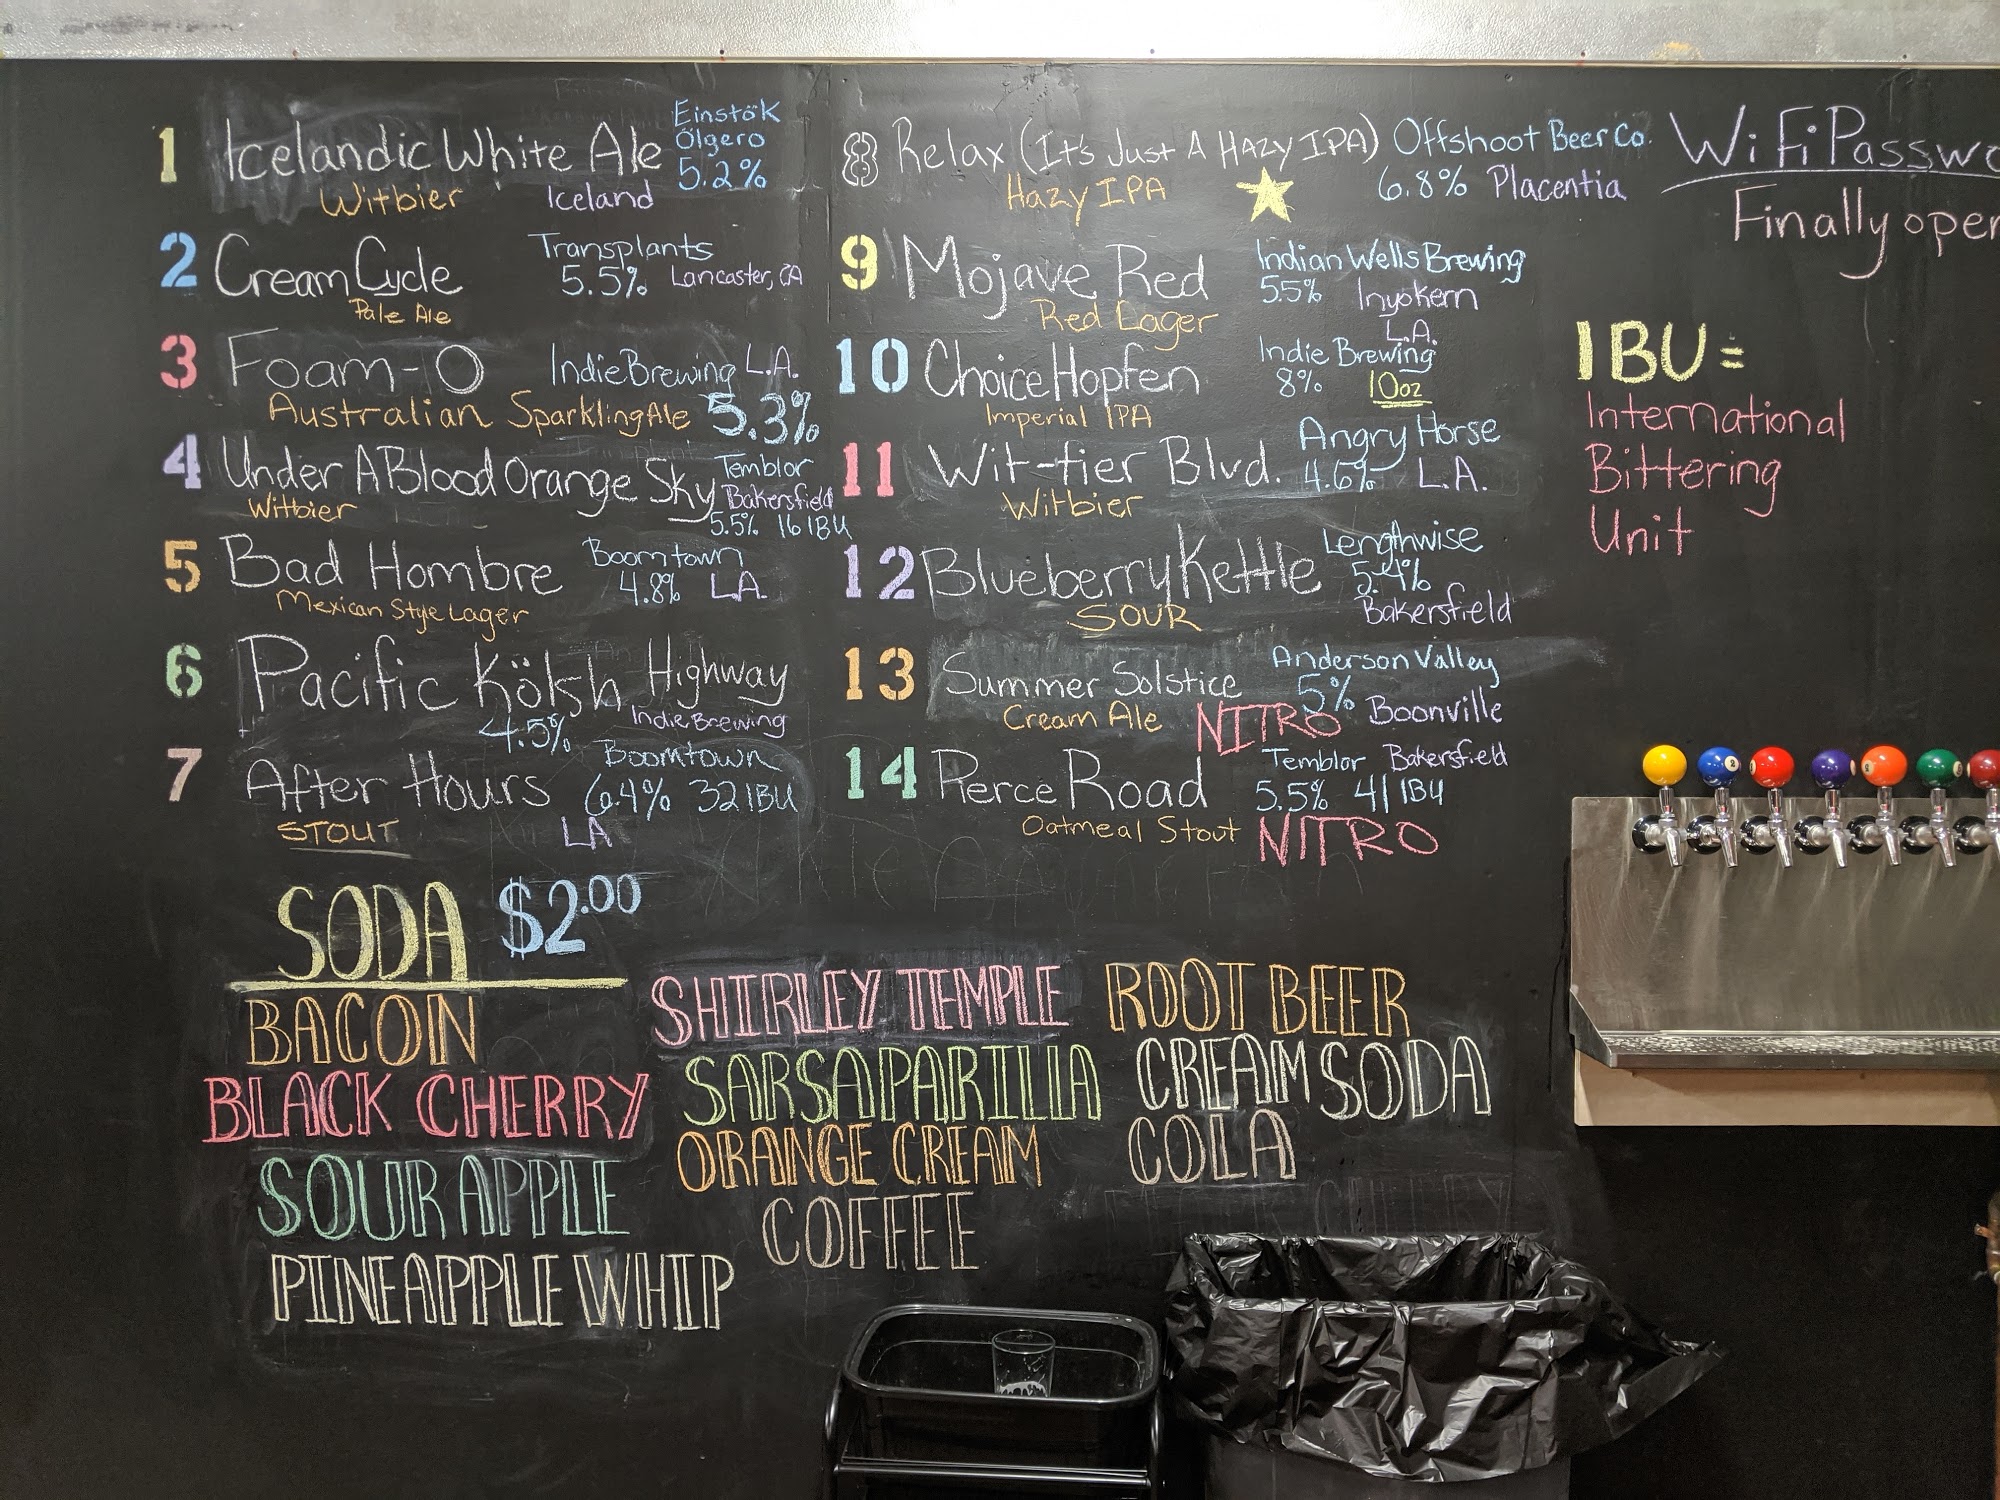 1 Icelandic White Ale Einstök
Ölgero
5.2%
Witbier Iceland
2 Cream Cycle Transplants
5.5% Lancaster, CA
Pale Ale
3 Foam-O Indie Brewing L.A.
Australian Sparkling Ale 5.3%
4 Under A Blood Orange Sky Temblor
Bakersfield
Witbier 5.5% 16 IBU
5 Bad Hombre Boomtown
4.8% LA.
Mexican Stye Lager
6 Pacific Kölsh Highway
4.5% Indie Brewing
7 After Hours Boomtown
6.4% 32 IBU
STOUT LA
8 Relax (It's Just A Hazy IPA) Offshoot Beer Co.
Hazy IPA 6.8% Placentia
9 Mojave Red Indian Wells Brewing
5.5% Inyokern
Red Lager
10 Choice Hopfen L.A.
Indie Brewing
8% 10oz
Imperial IPA
11 Wit-tier Blvd. Angry Horse
4.6% L.A.
Witbier
12 Blueberry Kettle Lengthwise
5.4%
SOUR Bakersfield
13 Summer Solstice Anderson Valley
5%
Cream Ale NITRO Boonville
14 Pierce Road Temblor Bakersfield
5.5% 41 IBU
Oatmeal Stout NITRO
WiFi Passwo
Finally open
IBU =
International
Bittering
Unit
SODA $2.00
BACON
BLACK CHERRY
SOUR APPLE
PINEAPPLE WHIP
SHIRLEY TEMPLE
SARSAPARILLA
ORANGE CREAM
COFFEE
ROOT BEER
CREAM SODA
COLA